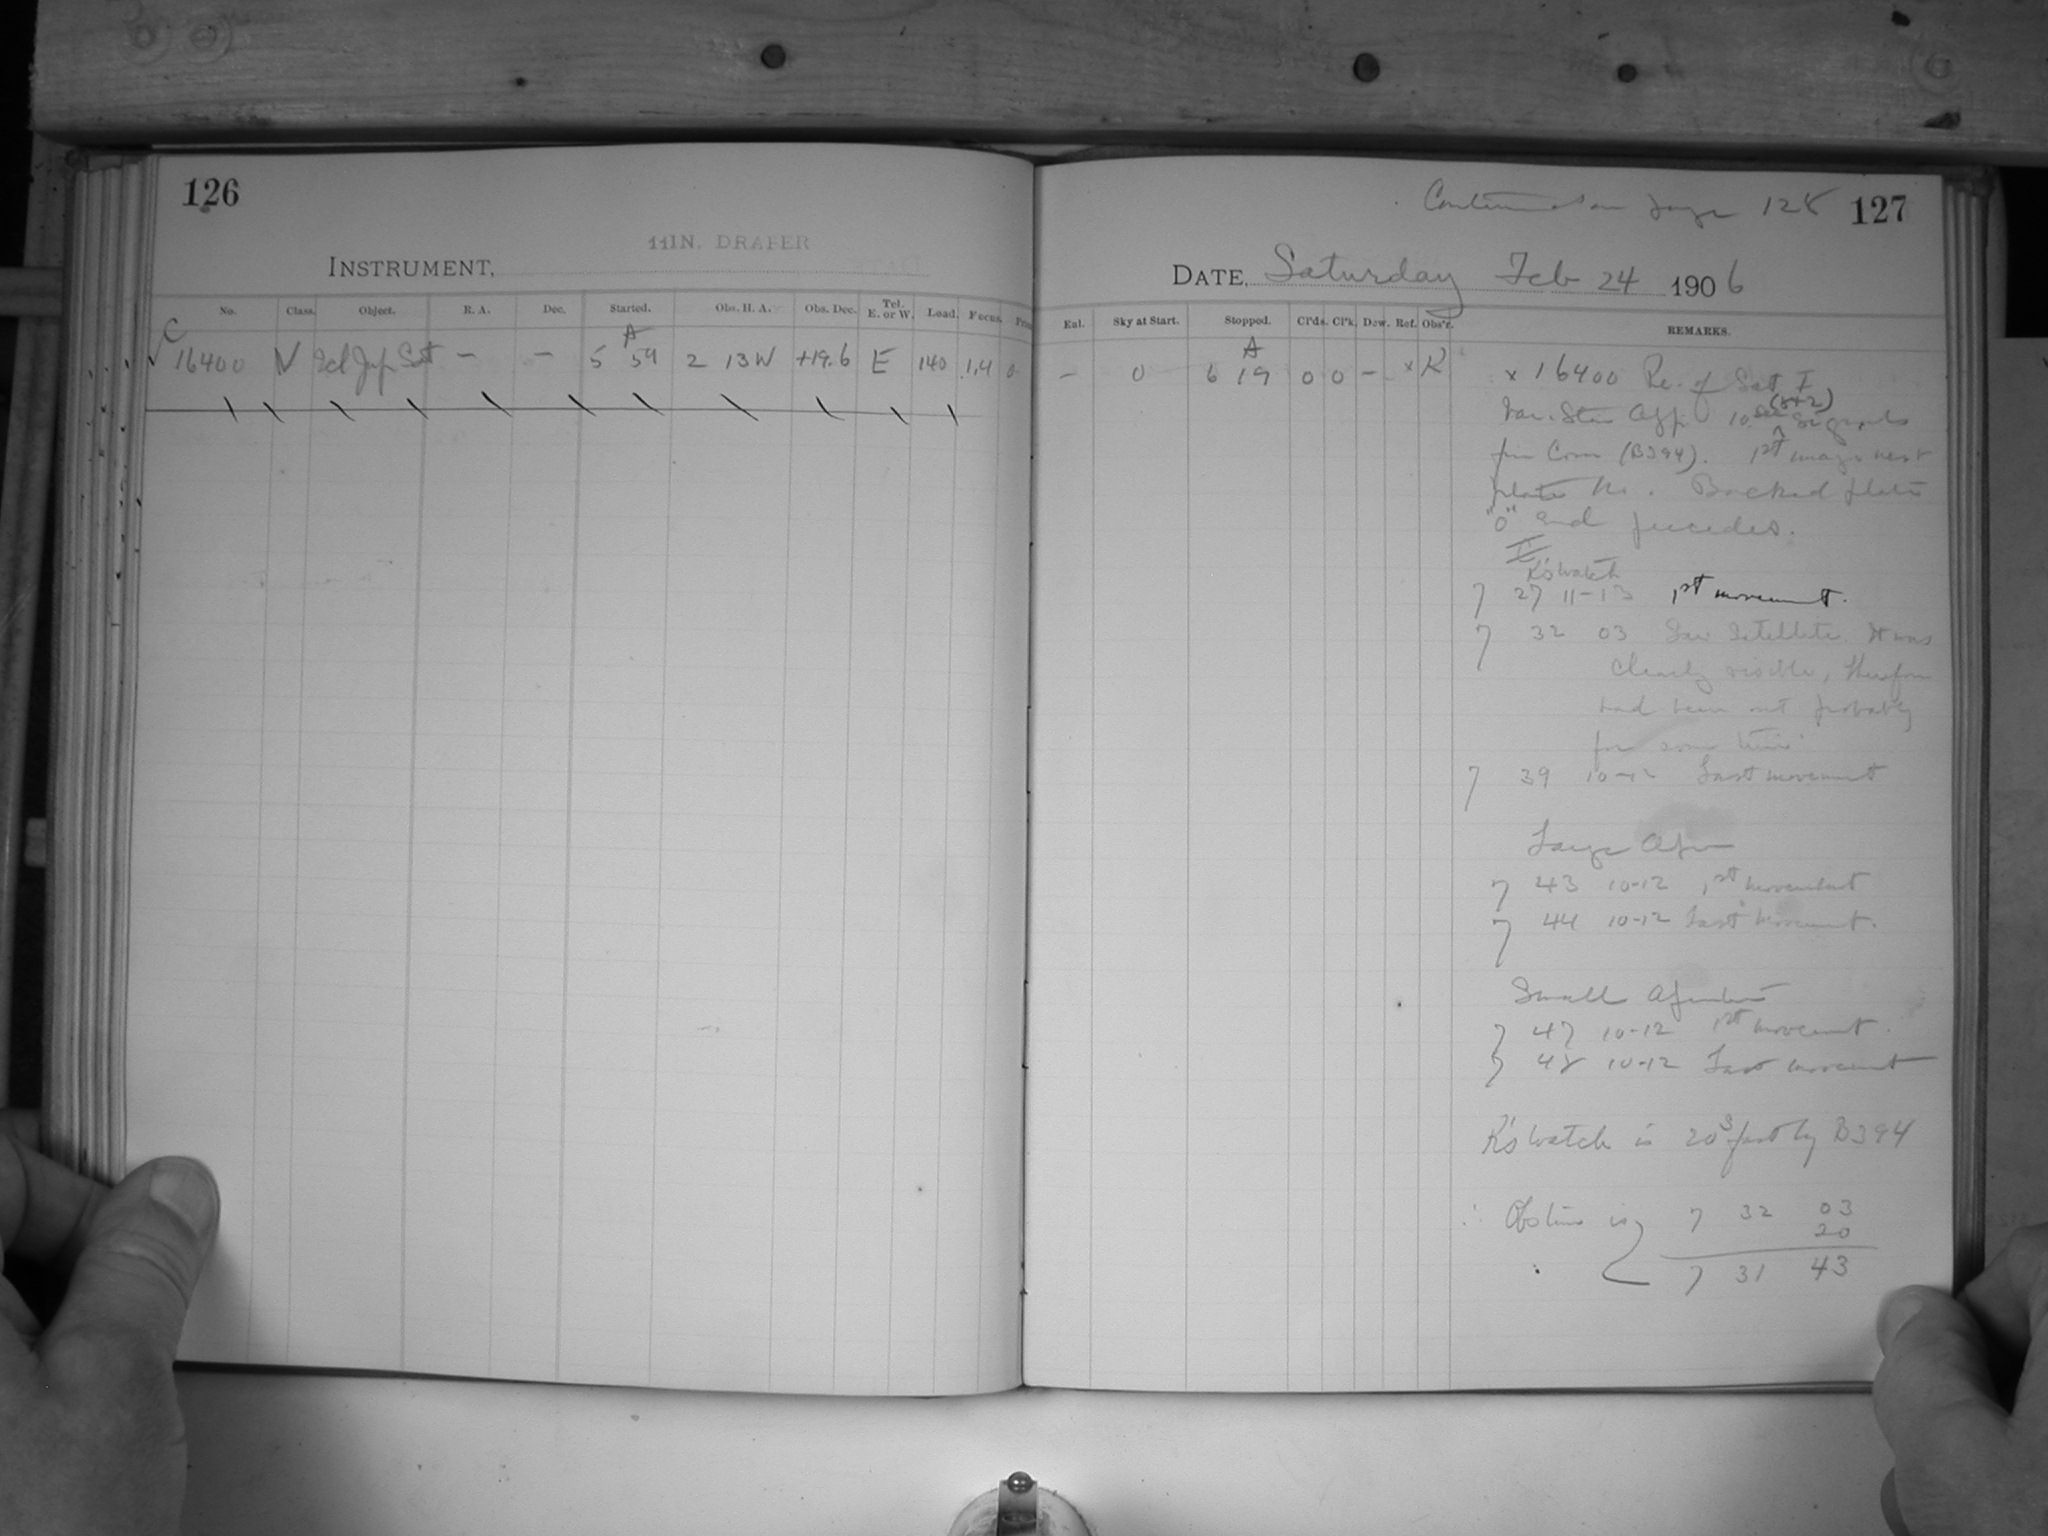 126
11IN. DRAPER
INSTRUMENT,
No. Class. Object. R. A. Dec. Started. Obs. H. A. Obs. Dec. Tel. E. or W. Load. Focus.
C 16400 N Ecl Jup Sat — — A 5 59 2 13W +19.6 E 140 1.4 0
Continued on page 128 127
DATE, Saturday Feb 24 1906
Eal. Sky at Start. Stopped. Cl'ds. Cl'k. Dew. Ref. Obs'r. REMARKS.
— 0 A 6 19 0 0 — x K
x 16400 Re. of Sat I
Var. Star App. 10 sec (8+2) signals
from Com (B394). 1st image next
plate No. Backed plate
"0" and precedes.
I
K's Watch
7 27 11-13 1st movement.
7 32 03 Saw Satellite. It was
clearly visible, therefore
had been out probably
for some time.
7 39 10-12 Last movement
Large Aper
7 43 10-12 1st movement
7 44 10-12 Last movement.
Small Aperture
7 47 10-12 1st movement.
7 48 10-12 Last movement
K's Watch is 20s fast by B394
∴ Obs time is 7 32 03
20
7 31 43